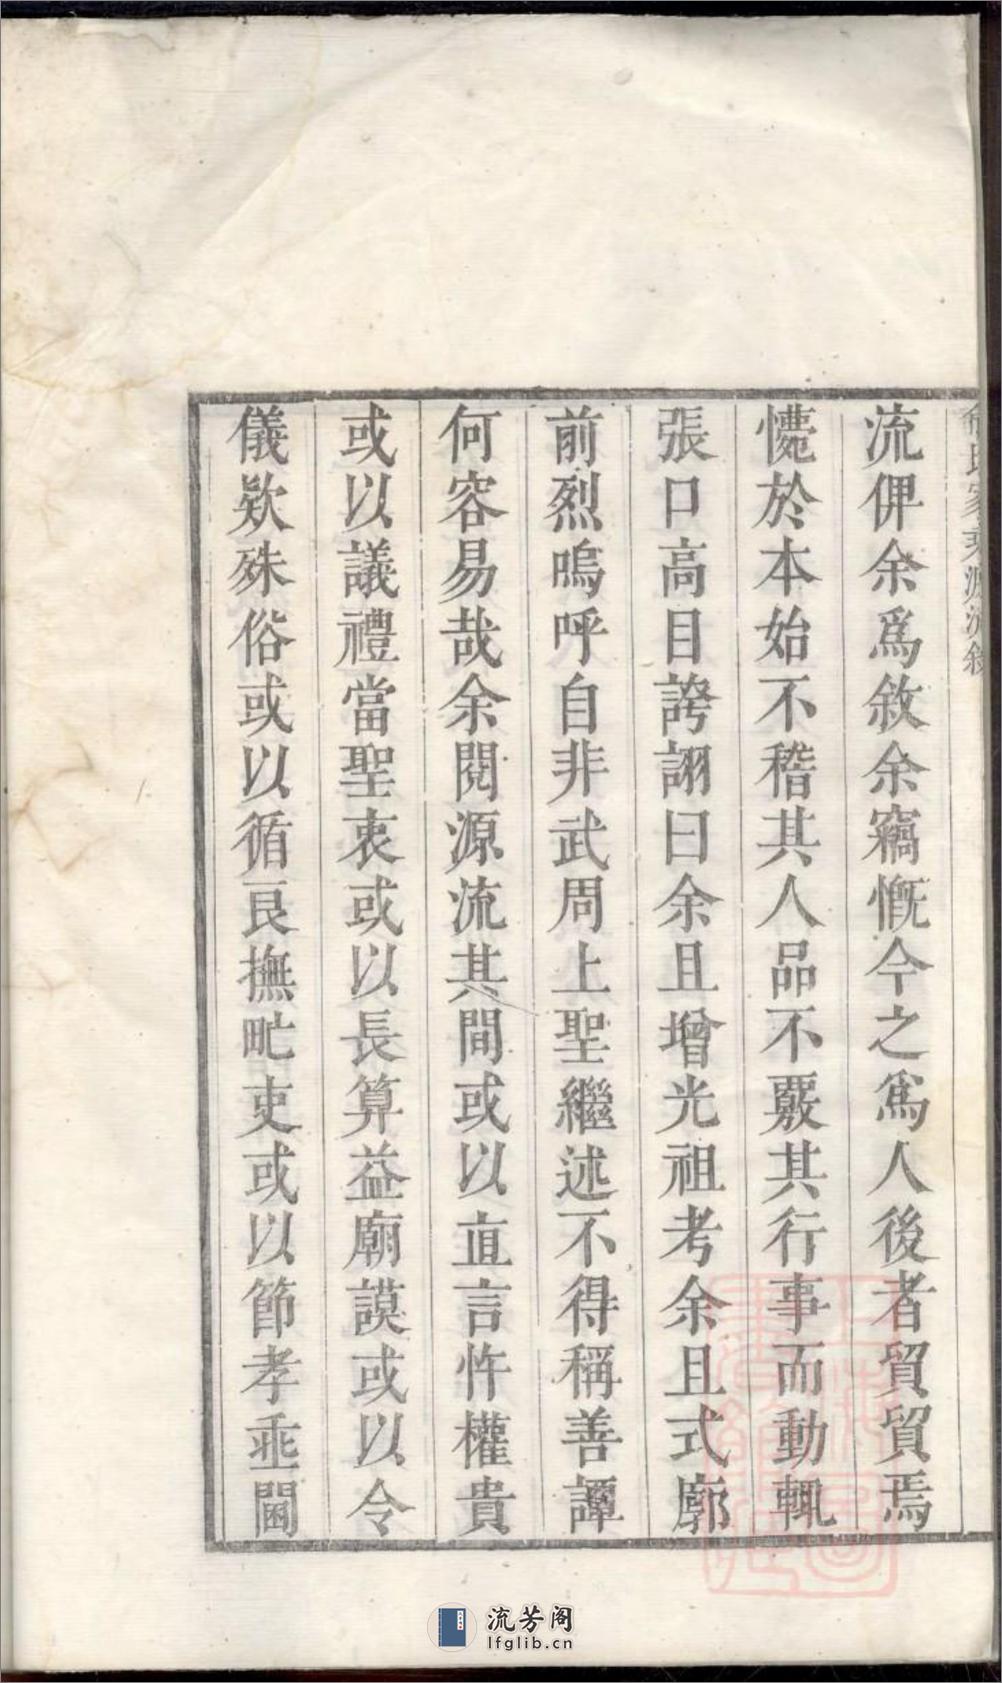 氏家乘源流敘
流俾余爲敘余竊慨今之爲人後者貿貿焉
懜於本始不稽其人品不覈其行事而動輒
張口高目誇詡曰余且增光祖考余且式廓
前烈嗚呼自非武周上聖繼述不得稱善譚
何容易哉余閱源流其間或以直言忤權貴
或以議禮當聖衷或以長算益廟謨或以令
儀欵殊俗或以循良撫甿吏或以節孝乖閫
流芳阁
lfglib.cn